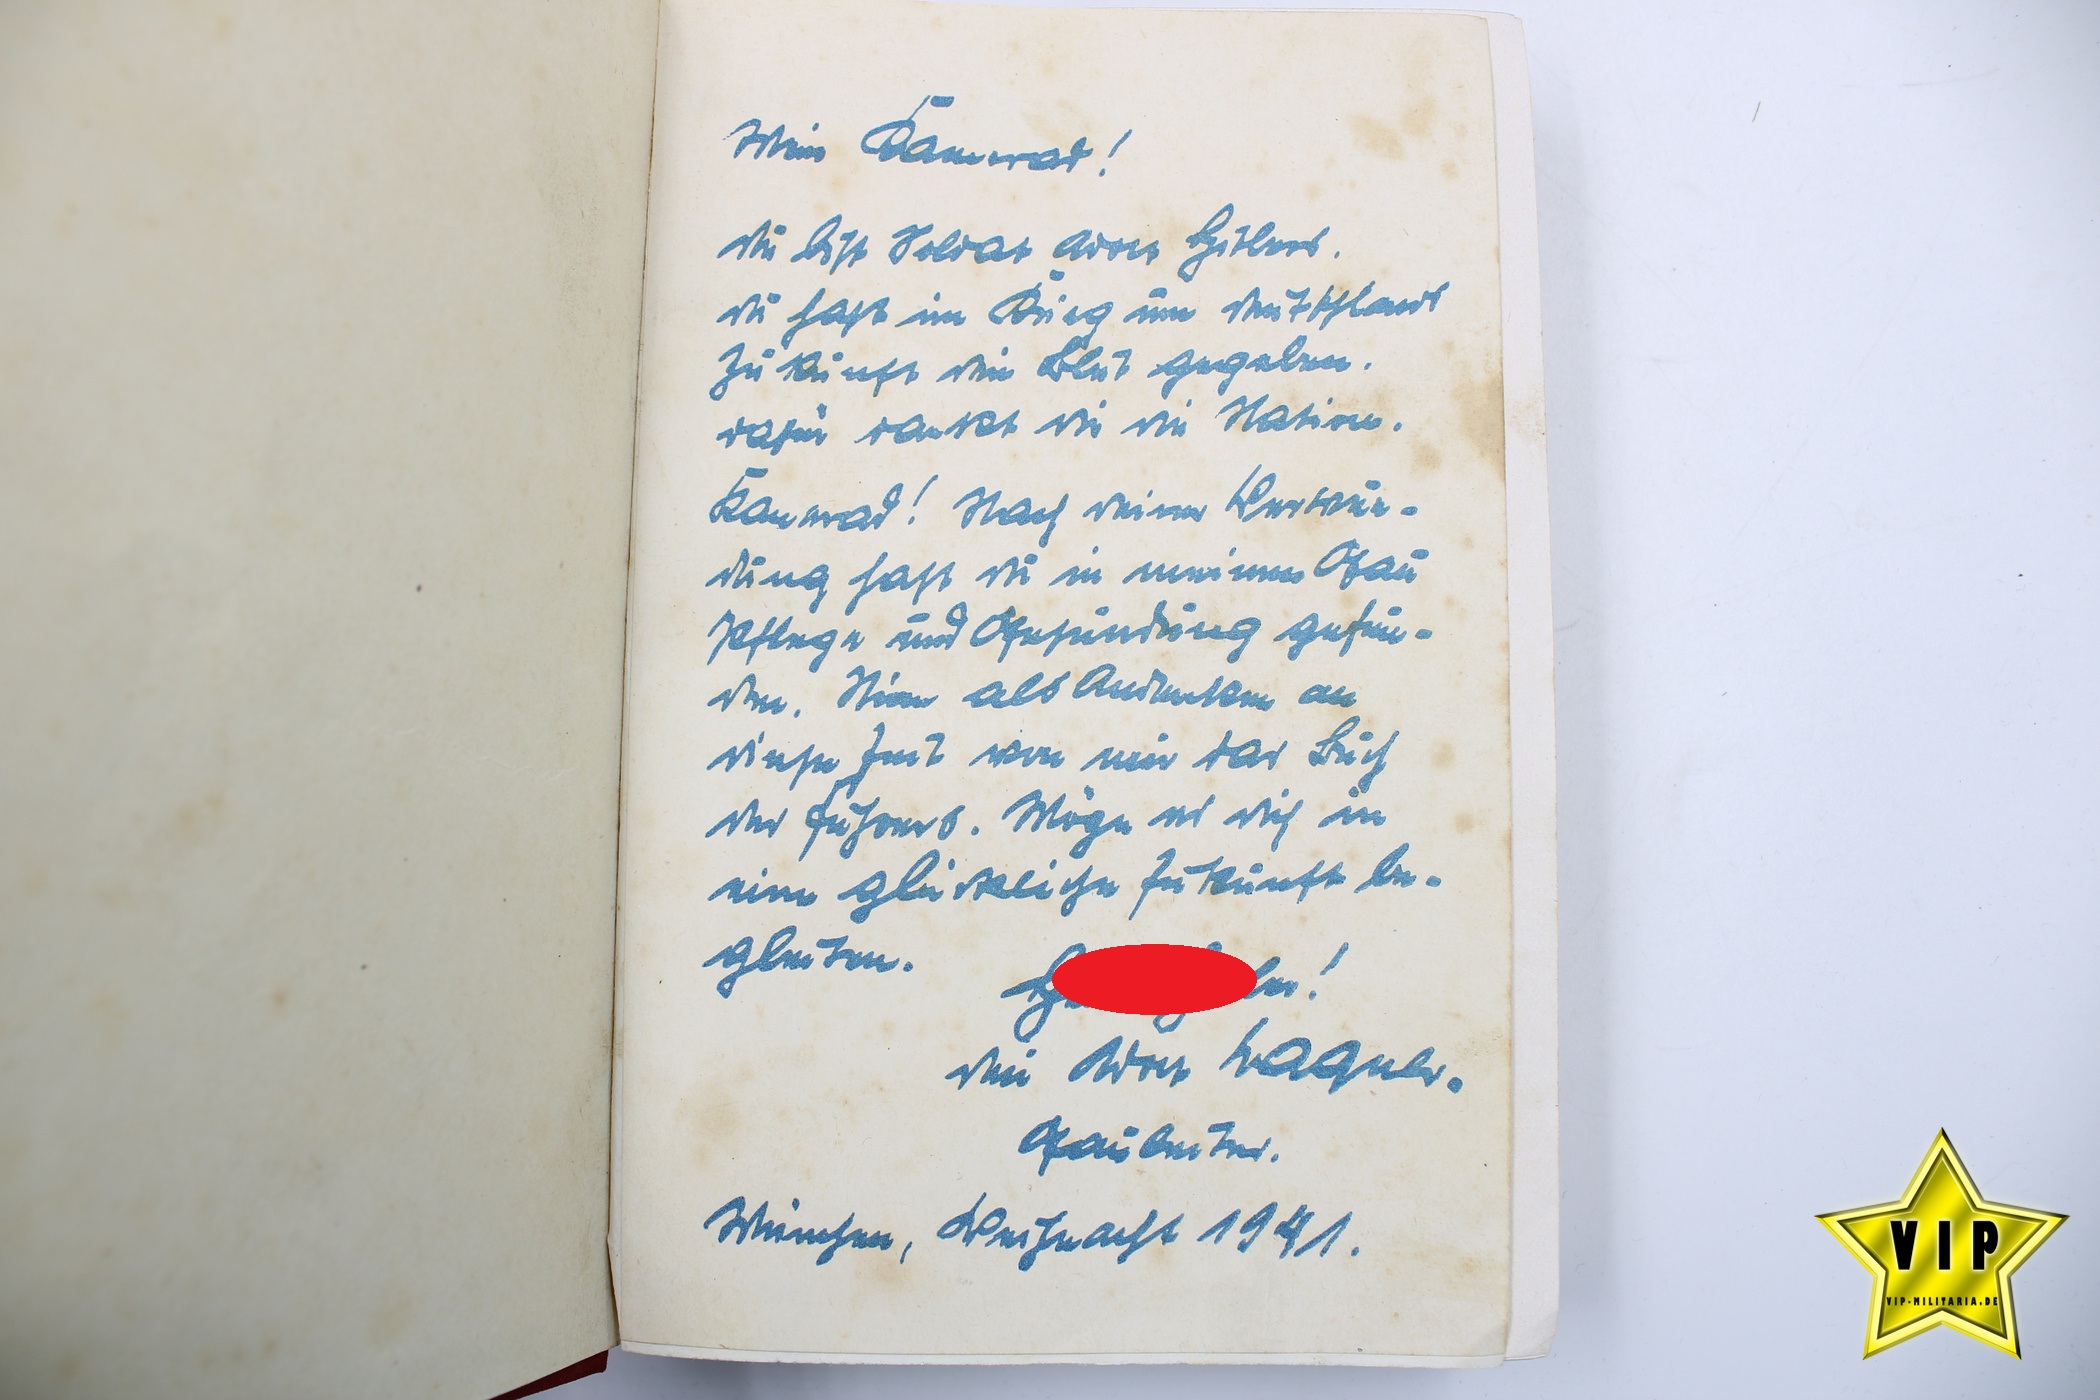 Mein Kamerad!
du bist Soldat Adolf Hitlers.
du hast im Krieg um deutschlands
Zukunft dein Blut gegeben.
dafür dankt dir die Nation.
Kamerad! Nach deiner Verwun-
dung hast du in meinem Gau
Pflege und Gesundung gefun-
den. Nimm als Andenken an
diese Zeit von mir das Buch
des Führers. Möge es dich in
eine glückliche Zukunft be-
gleiten.
dein Adolf Wagner.
Gauleiter.
München, Weihnacht 1941.
VIP
VIP-MILITARIA.DE